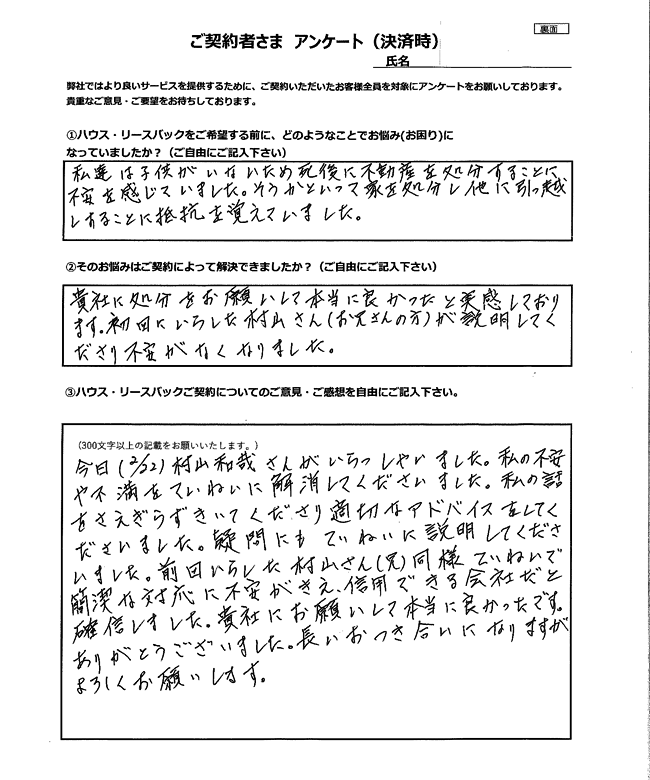 裏面
ご契約者さま アンケート（決済時）
氏名
弊社ではより良いサービスを提供するために、ご契約いただいたお客様全員を対象にアンケートをお願いしております。
貴重なご意見・ご要望をお待ちしております。
①ハウス・リースバックをご希望する前に、どのようなことでお悩み(お困り)に
なっていましたか？（ご自由にご記入下さい）
私達は子供がいないため死後に不動産を処分することに
不安を感じていました。そうかといって家を処分し他に引っ越
しすることに抵抗を覚えていました。
②そのお悩みはご契約によって解決できましたか？（ご自由にご記入下さい）
貴社に処分をお願いして本当に良かったと実感しており
ます。初回にいらした村山さん(お兄さんの方)が説明してく
ださり不安がなくなりました。
③ハウス・リースバックご契約についてのご意見・ご感想を自由にご記入下さい。
（300文字以上の記載をお願いいたします。）
今日(2/22)村山和哉さんがいらっしゃいました。私の不安
や不満をていねいに解消してくださいました。私の話
をさえぎらずきいてくださり適切なアドバイスをしてく
ださいました。疑問にもていねいに説明してくださ
いました。前回いらした村山さん(兄)同様ていねいで
簡潔な対応に不安がきえ、信用できる会社だと
確信しました。貴社にお願いして本当に良かったです。
ありがとうございました。長いおつき合いになりますが
よろしくお願いします。